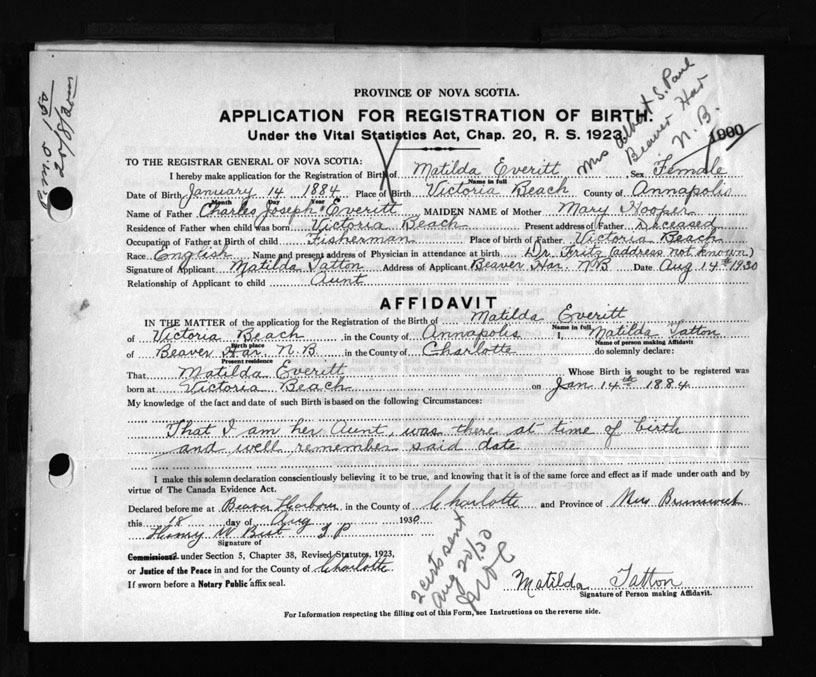 P.M.O. 1 00
20/8/30
PROVINCE OF NOVA SCOTIA.
APPLICATION FOR REGISTRATION OF BIRTH.
Under the Vital Statistics Act, Chap. 20, R. S. 1923.
Mrs Albert S. Paul
Beaver Har
N. B.
1900
TO THE REGISTRAR GENERAL OF NOVA SCOTIA:
I hereby make application for the Registration of Birth of Matilda Everitt Sex Female
Name in full
Date of Birth January 14 1884 Place of Birth Victoria Beach County of Annapolis
Month Day Year
Name of Father Charles Joseph Everitt MAIDEN NAME of Mother Mary Hooper
Residence of Father when child was born Victoria Beach Present address of Father Deceased
Occupation of Father at Birth of child Fisherman Place of birth of Father Victoria Beach
Race English Name and present address of Physician in attendance at birth Dr. Fritz (address not known)
Signature of Applicant Matilda Tatton Address of Applicant Beaver Har. N B Date Aug 14th 1930
Relationship of Applicant to child Aunt
AFFIDAVIT
IN THE MATTER of the application for the Registration of the Birth of Matilda Everitt
Name in full
of Victoria Beach in the County of Annapolis I, Matilda Tatton
Birth place Name of person making Affidavit
of Beaver Har. N. B in the County of Charlotte do solemnly declare:
Present residence
That Matilda Everitt Whose Birth is sought to be registered was
born at Victoria Beach on Jan 14th 1884
My knowledge of the fact and date of such Birth is based on the following Circumstances:
That I am her Aunt, was there at time of birth
and well remember said date
I make this solemn declaration conscientiously believing it to be true, and knowing that it is of the same force and effect as if made under oath and by
virtue of The Canada Evidence Act.
Declared before me at Beaver Harbour in the County of Charlotte and Province of New Brunswick
this 18 day of Aug 1930
Signature of
J P
Commissioner under Section 5, Chapter 38, Revised Statutes, 1923,
or Justice of the Peace in and for the County of Charlotte
If sworn before a Notary Public affix seal.
2 certs sent
Aug 20/30
Matilda Tatton
Signature of Person making Affidavit.
For Information respecting the filling out of this Form, see Instructions on the reverse side.